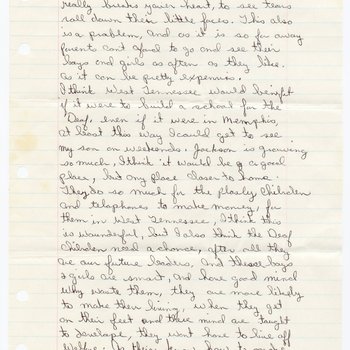 really breaks your heart, to see tears
roll down their little faces. This also
is a problem, And as it is so far away
parent can't afford to go and see their
boys and girls as often as they like.
As it can be pretty expensive.
I think West Tennessee would benefit
if it were to build a school for the
Deaf, even if it were in Memphis,
at least this way I could get to see
my son on weekends. Jackson is growing
so much, I think it would be a good
place, but any place closer to home.
They do so much for the
and telephones to make money, for
them in West Tennessee, I think this
is wounderful, but I also think the Deaf
Children need a chance, after all they
are our future leaders, And these boys
& girls are smart, and have good mind
why waste them, they are more likely
to make their living, when they get
on their feet and their mind are taught
to develope, they wont have to live off